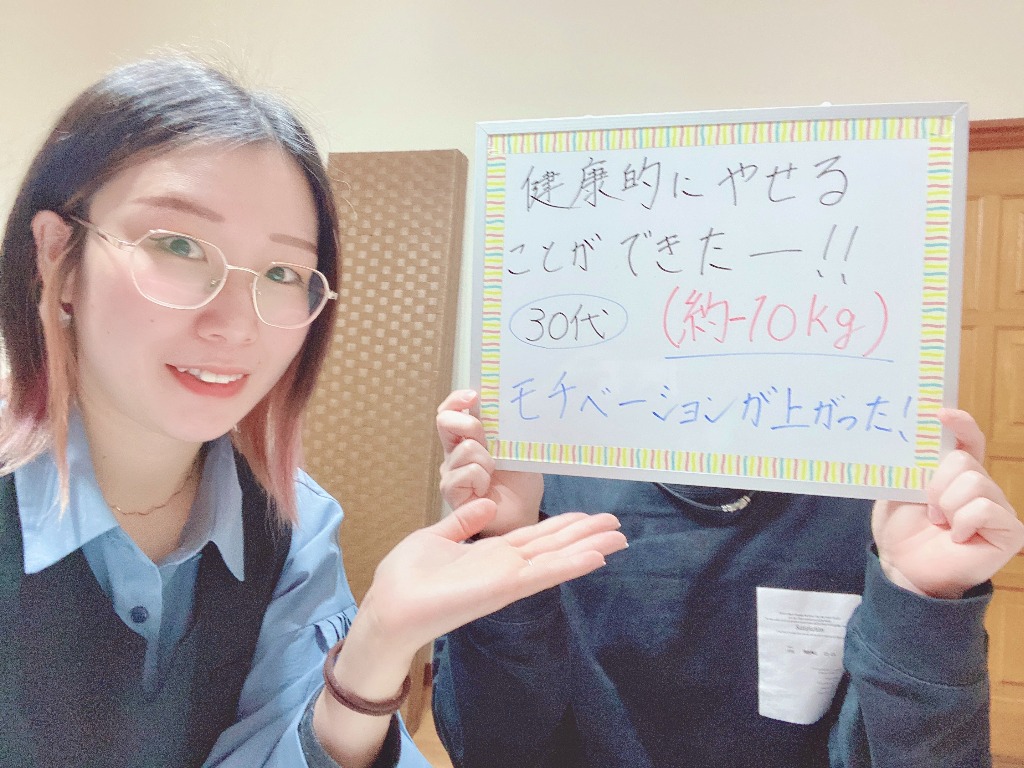 健康的にやせる
ことができたー!!
30代 (約-10kg)
モチベーションが上がった!